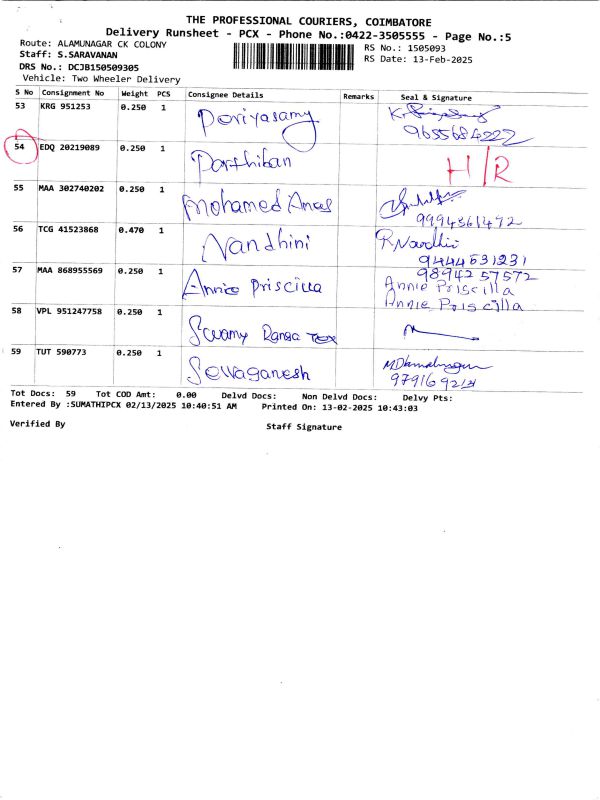 THE PROFESSIONAL COURIERS, COIMBATORE
Delivery Runsheet - PCX - Phone No.:0422-3505555 - Page No.:5
Route: ALAMUNAGAR CK COLONY
RS No.: 1505093
Staff: S.SARAVANAN
RS Date: 13-Feb-2025
DRS No.: DCJB150509305
Vehicle: Two Wheeler Delivery
S No Consignment No Weight PCS Consignee Details Remarks Seal & Signature
53 KRG 951253 0.250 1 Periyasamy
9655684222
54 EDQ 20219089 0.250 1 Parthiban H/R
55 MAA 302740202 0.250 1 Mohamed Anas
9994361472
56 TCG 41523868 0.470 1 Nandhini R.Nandhi
9444531231
57 MAA 868955569 0.250 1 Annie Priscilla 9894257572
Annie Priscilla
Annie Priscilla
58 VPL 951247758 0.250 1 Swamy Ranga Tex
59 TUT 590773 0.250 1 Sewaganesh
Tot Docs: 59 Tot COD Amt: 0.00 Delvd Docs: Non Delvd Docs: Delvy Pts:
Entered By :SUMATHIPCX 02/13/2025 10:40:51 AM Printed On: 13-02-2025 10:43:03
Verified By Staff Signature